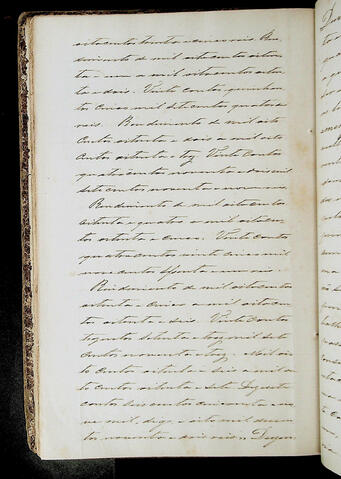 oitocentos trinta e cinco reis. Ren
dimento de mil oitocentos oitenta
e um a mil oitocentos oiten
ta e dois. Vinte contos, quinhen
tos cinco mil setecentos quatorze
reis. Rendimento de mil oito
centos oitenta e dois a mil oito
centos oitenta e trez. Vinte contos
quatrocentos noventa e seis mil
setecentos noventa e nove
Rendimento de mil oitocentos
oitenta e quatro a mil oitocen
tos oitenta e cinco. Vinte contos
quatrocentos vinte cinco mil
novecentos e um reis.
Rendimento de mil oitocentos
oitenta e cinco a mil oitocen
tos oitenta e seis. Vinte contos
trezentos setenta e trez mil sete
centos noventa e trez. Mil oi
to centos oitenta e seis a mil oi
to centos oitenta e sete Dezoito
contos seis centos cincoenta e no
ve mil, digo, e oito mil seiscen
tos noventa e dois reis.